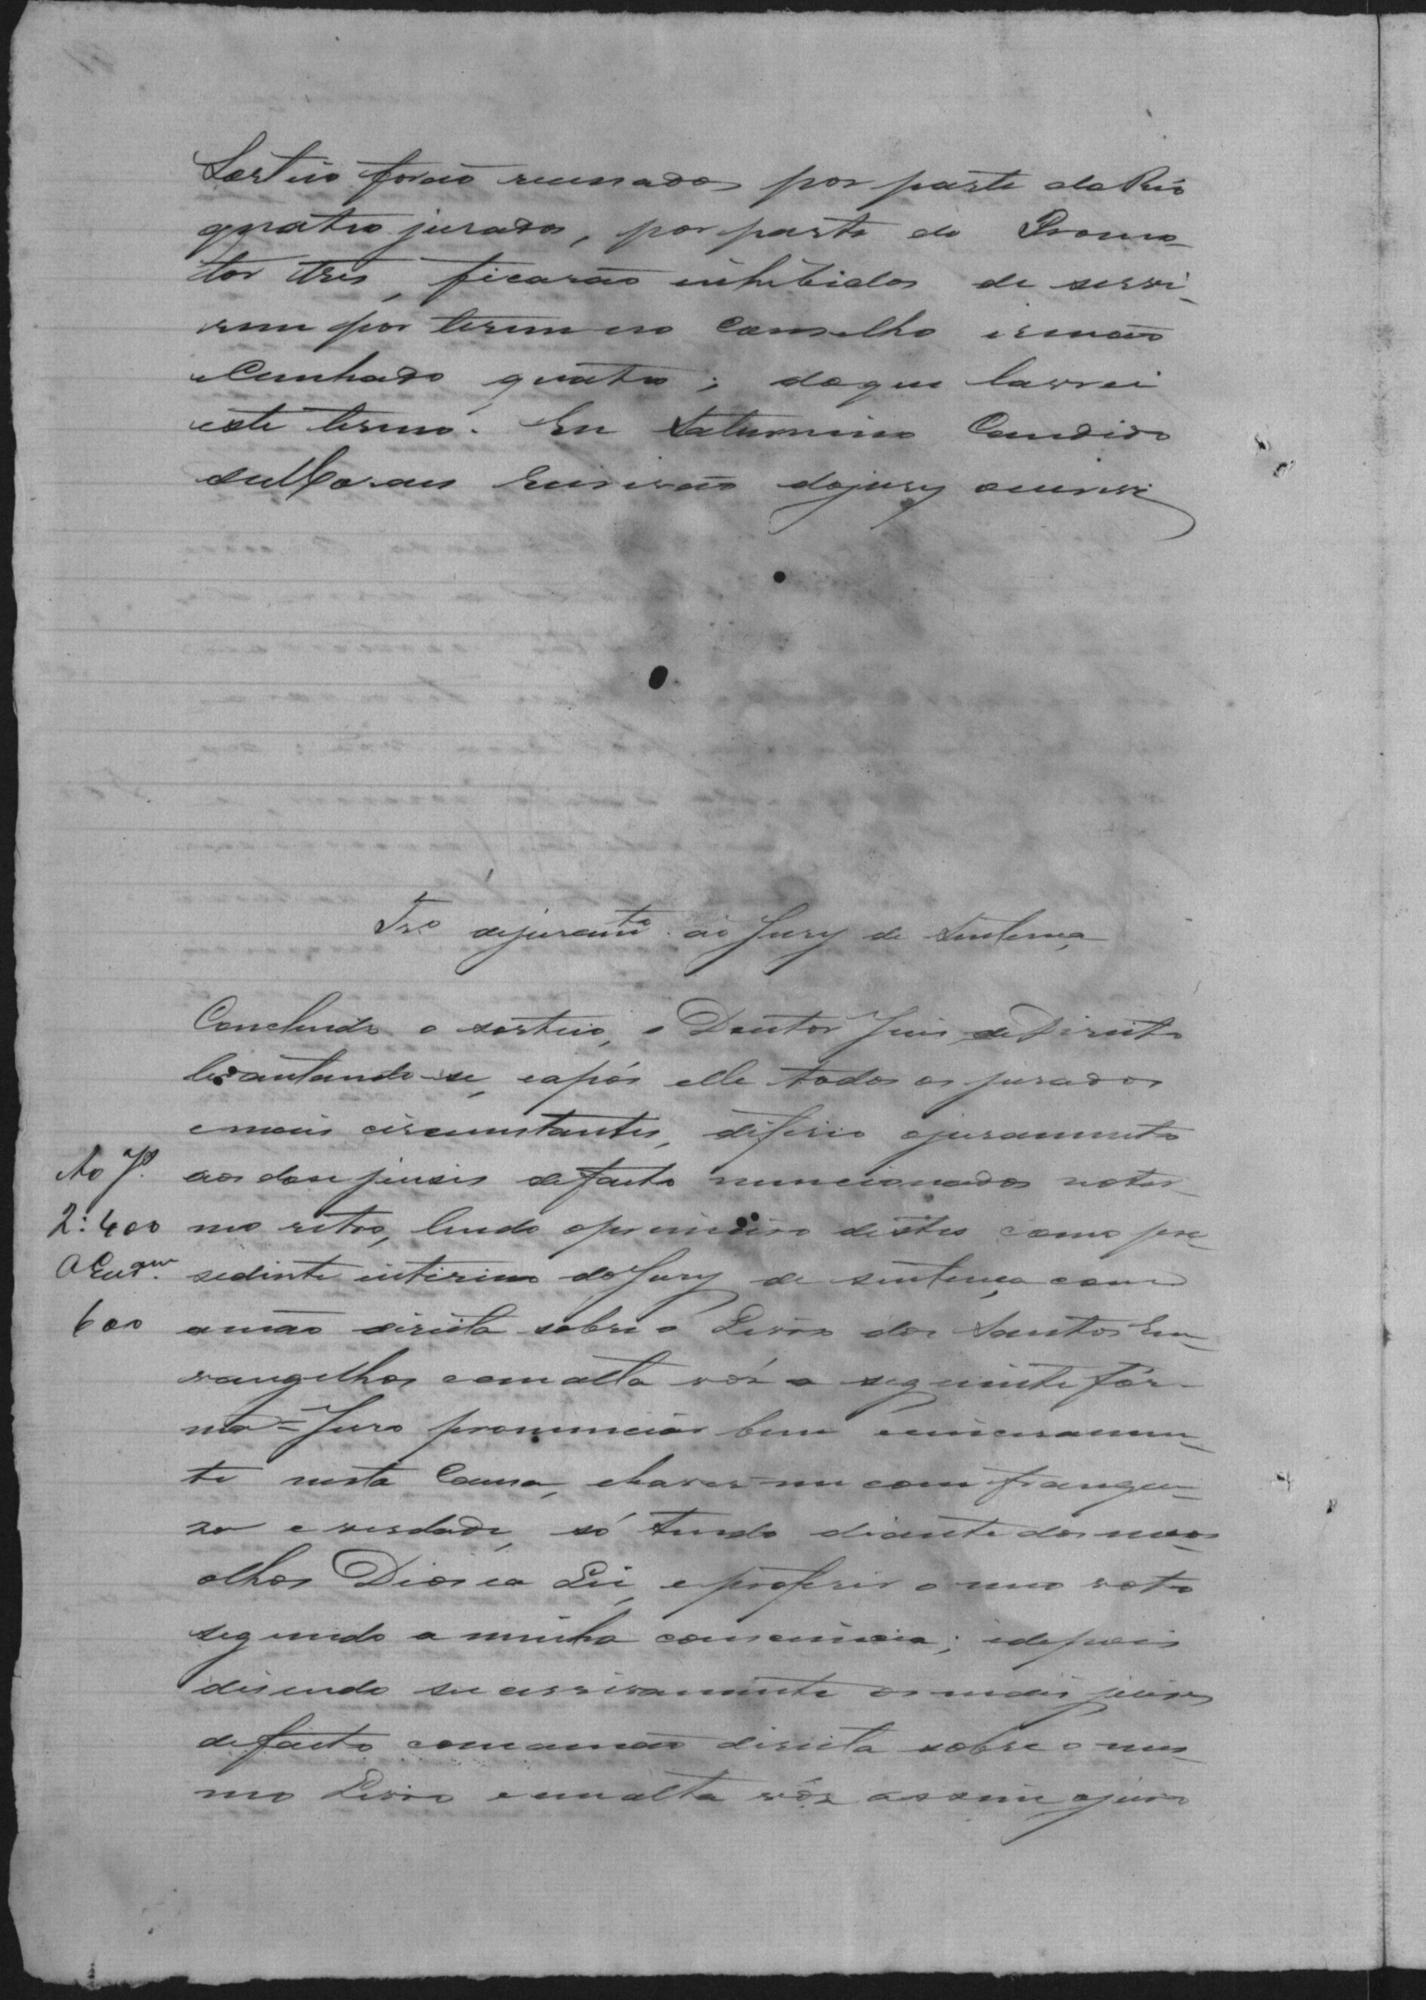 Sorteio forão recusados por parte do Réo
quatro jurados, por parte do Promo-
tor tres, ficarão inhibidos de servi-
rem por terem no Conselho irmão
e Cunhado quatro; do que lavrei
este termo. Eu Saturnino Candido
de Moraes Escrivão do jury o escrevi
Tr.º de juramtº ao Jury de Sentença
Concluido o sorteio, o Doutor Juis de Direito
levantando-se, e após elle todos os jurados
e mais circumstantes, diferio o juramento
aos dose juises de facto mencionados no ter-
mo retro, lendo o primeiro destes como pre-
sedente interino do Jury de sentença com
a mão direita sobre o Livro dos Santos Ev-
vangelhos com alta vós a seguinte fór-
ma = Juro pronunciar bem e sinceramen-
te nesta Causa, e haver-me com franque-
za e verdade, só tendo diante dos meos
olhos Deos e a Lei, e proferir o meu voto
segundo a minha consciencia; e depois
disendo successivamente os mais juises
de facto com a mão direita sobre o mes-
mo Livro e em alta vós assim o juro
Ao J.
2:400
600